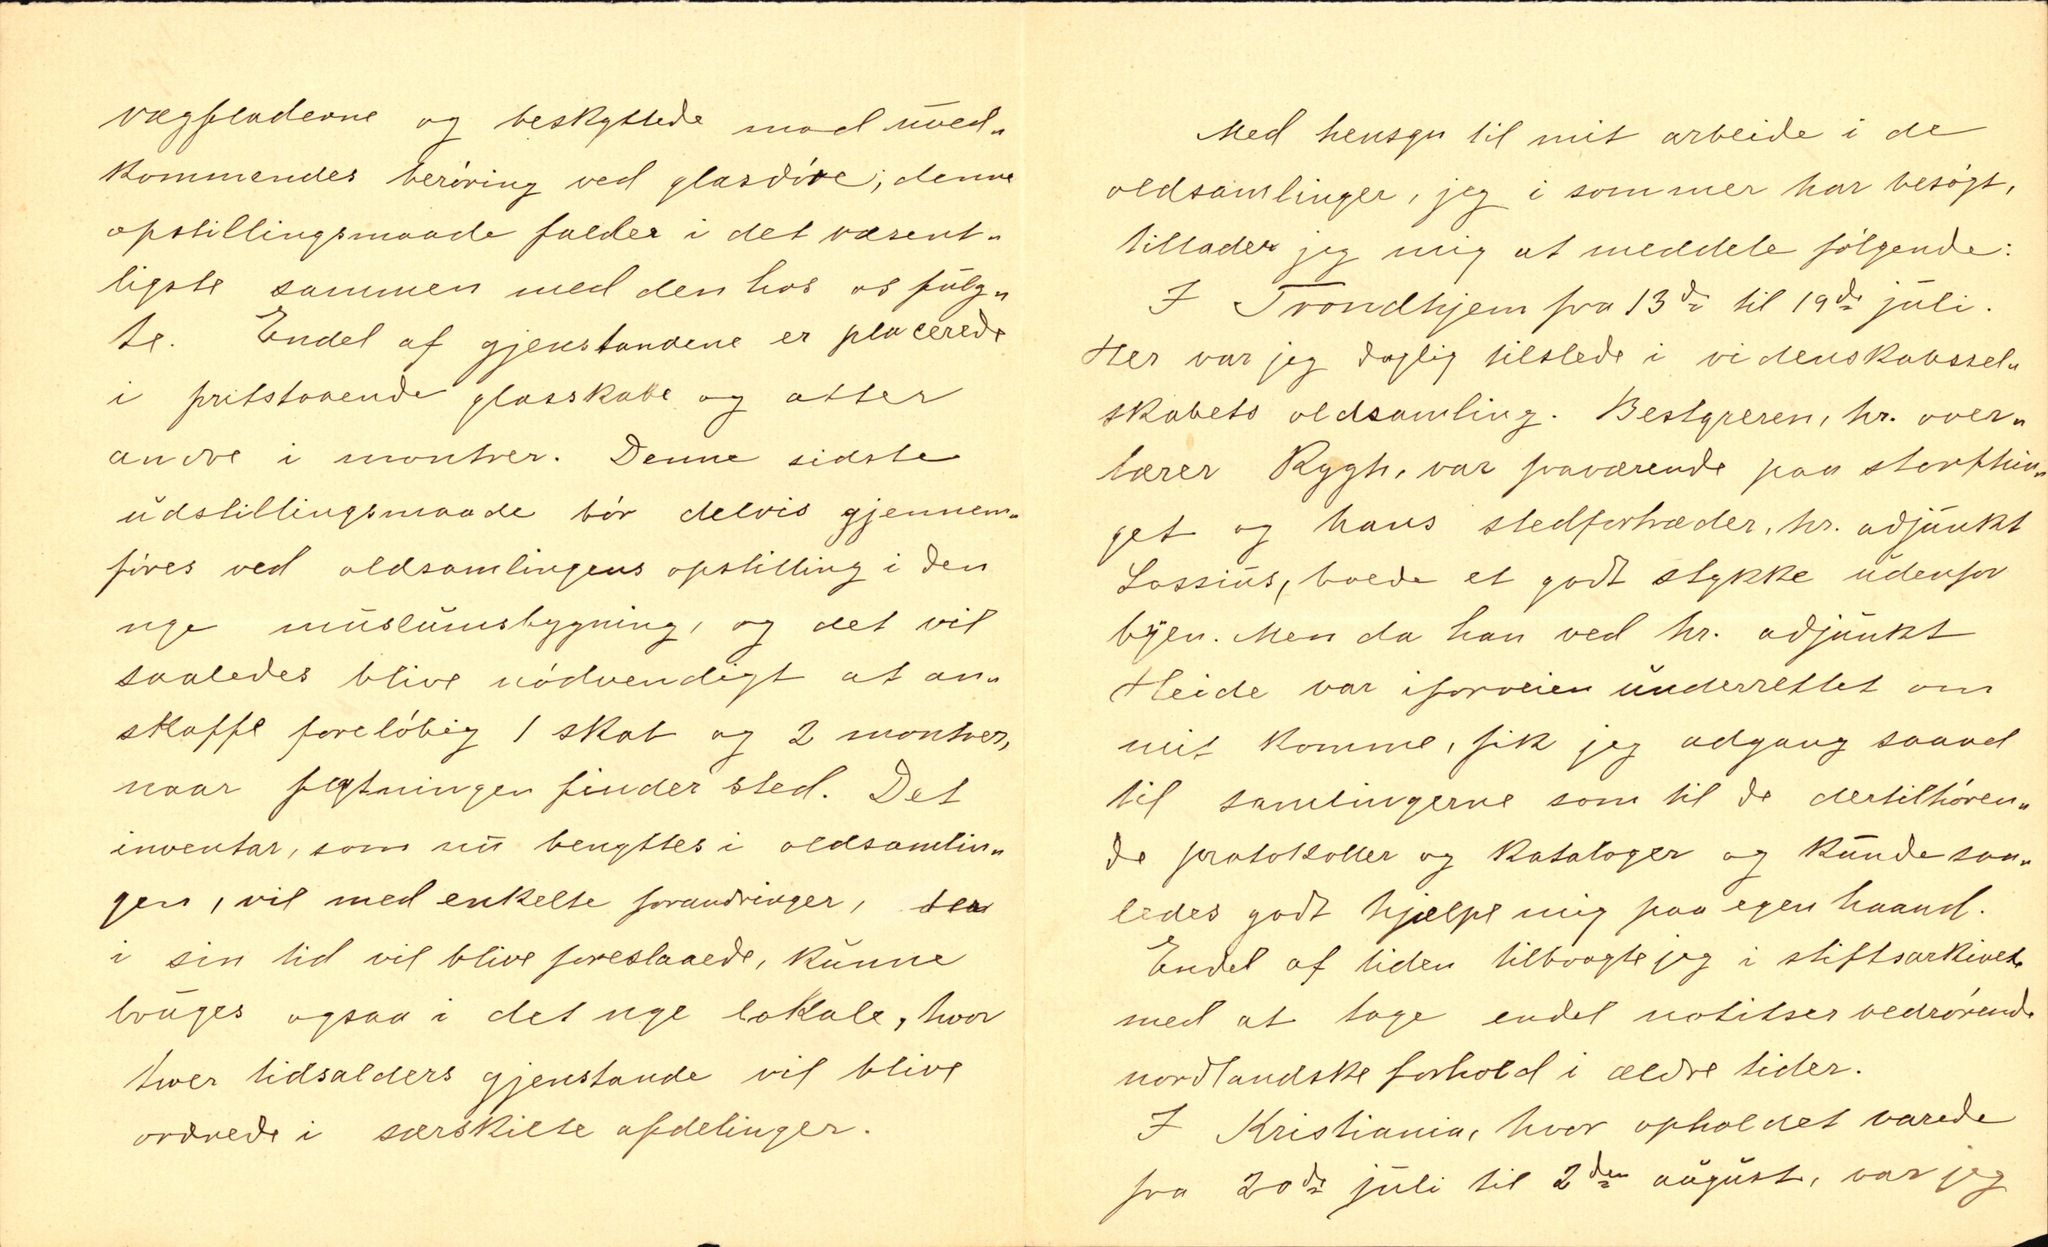 vægfladerne og beskyttede mod uved„
kommendes berøring ved glasdøre; denne
opstillingsmaade falder i det væsent„
ligste sammen med den hos os fulg„
te. Endel af gjenstandene er placerede
i fritstaaende glasskabe og atter
andre i montrer. Denne sidste
udstillingsmaade bør delvis gjennem„
føres ved oldsamlingens opstilling i den
nye musæumsbygning, og det vil
saaledes blive nødvendigt at an„
skaffe foreløbig 1 skab og 2 montrer,
naar flytningen finder sted. Det
inventar, som nu benyttes i oldsamlin„
gen, vil med enkelte forandringer, der
i sin tid vil blive foreslaaede, kunne
bruges ogsaa i det nye lokale, hvor
hver tidsalders gjenstande vil blive
ordnede i særskilte afdelinger.
Med hensyn til mit arbeide i de
oldsamlinger, jeg i sommer har besøgt,
tillader jeg mig at meddele følgende:
I Trondhjem fra 13de til 19de juli.
Her var jeg daglig tilstede i videnskabssel„
skabets oldsamling. Bestyreren, hr. over„
lærer Rygh, var fraværende paa storthin„
get og hans stedfortræder, hr. adjunkt
Lossius, boede et godt stykke udenfor
byen. Men da han ved hr. adjunkt
Heide var iforveien underrettet om
mit komme, fik jeg adgang saavel
til samlingerne som til de dertilhøren„
de protokoller og kataloger og kunde saa„
ledes godt hjælpe mig paa egen haand.
Endel af tiden tilbragte jeg i stiftsarkivet
med at tage endel notitser vedrørende
nordlandske forhold i ældre tider.
I Kristiania, hvor opholdet varede
fra 20de juli til 2den august, var jeg